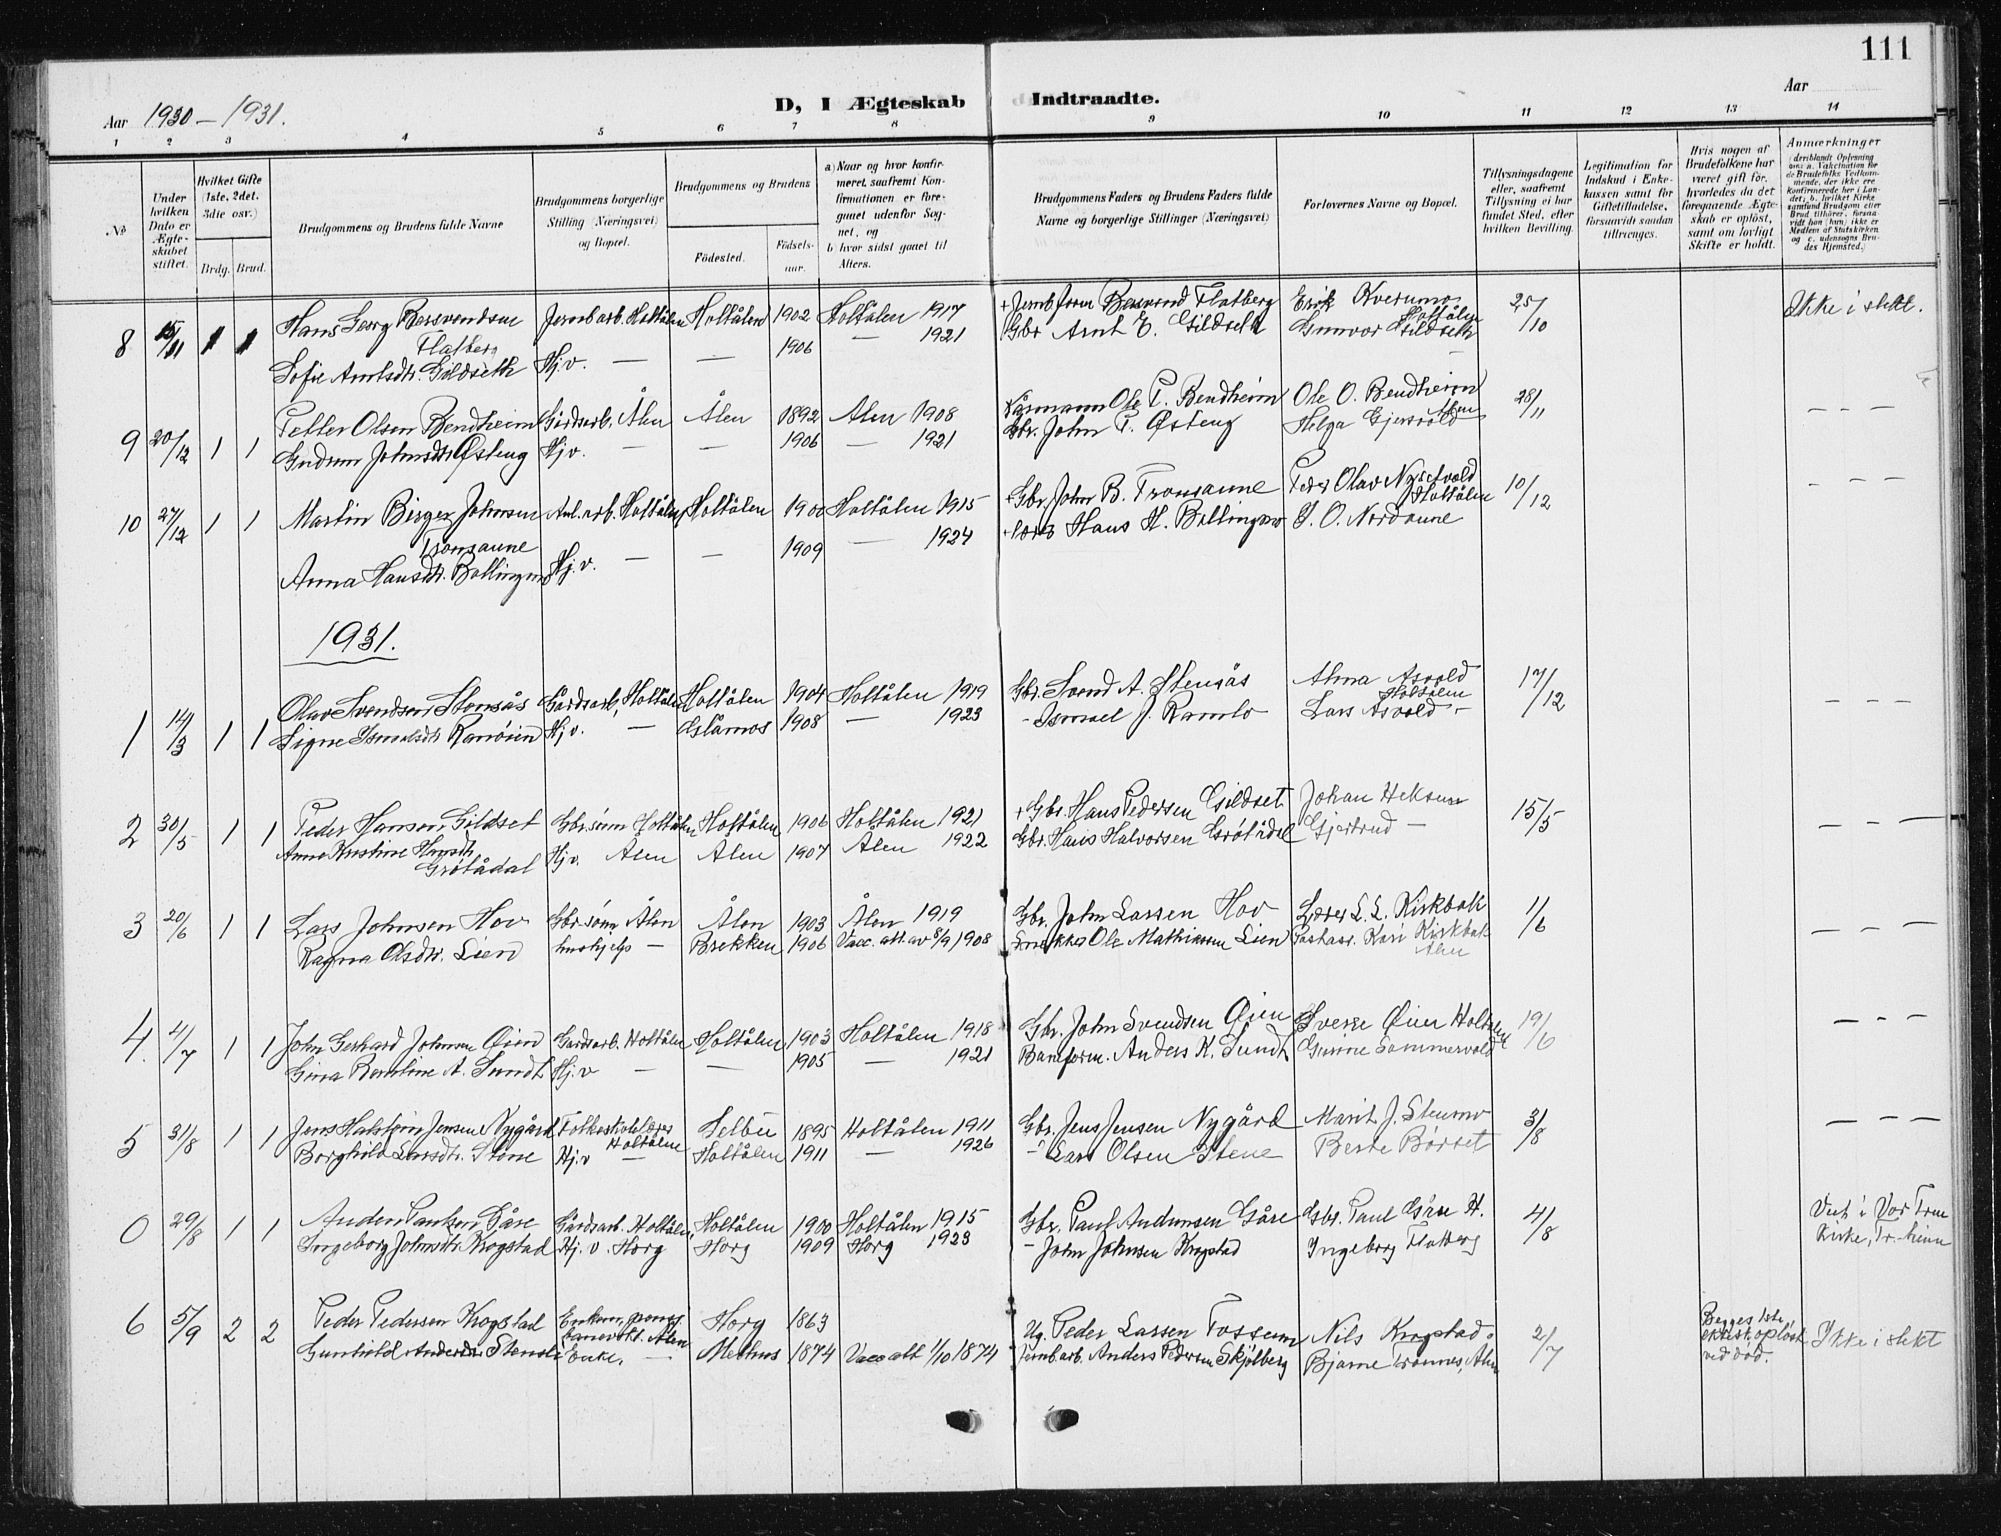 111
Aar 1930 – 1931.
D, I Ægteskab Indtraadte.
Aar
1 2 3 4 5 6 7 8 9 10 11 12 13 14
No
Under hvilken Dato er Ægteskabet stiftet.
Hvilket Gifte (1ste, 2det, 3die osv.)
Brdg. Brud.
Brudgommens og Brudens fulde Navne
Brudgommens borgerlige Stilling (Næringsvei) og Bopæl.
Brudgommens og Brudens
Fødested.
Fødselsaar.
a) Naar og hvor konfirmeret, saafremt Konfirmationen er foregaaet udenfor Sognet, og
b) hvor sidst gaaet til Alters.
Brudgommens Faders og Brudens Faders fulde Navne og borgerlige Stillinger (Næringsvei)
Forlovernes Navne og Bopæl.
Tillysningsdagene eller, saafremt Tillysning ei har fundet Sted, efter hvilken Bevilling.
Legitimation for Indskud i Enkekassen samt for Giftetilladelse, forsaavidt saadan tiltrænges.
Hvis nogen af Brudefolkene har været gift før, hvorledes da det foregaaende Ægteskab er opløst, samt om lovligt Skifte er holdt.
Anmærkninger
8 15/11 1 1 Hans Georg Bersvendsen Jernb arb. Holtålen Holtålen 1902 Holtålen 1917 + Jernb form Bersvend Flatberg Erik Kverumo 25/10 Ikke i slekt.
Flatberg Holtålen
Sofie Arntsdtr. Gildseth Hj.v. — — 1906 — 1921 Gbr Arnt E. Gildseth Gunvor Gildseth
9 20/12 1 1 Petter Olsen Bendheim Gårdsarb. Ålen Ålen 1892 Ålen 1908 Kårmann Ole P. Bendheim Ole O. Bendheim 28/11 — — —
Gudrun Johnsdtr Østeng Hj.v. — — 1906 — 1921 Gbr. John P. Østeng Helga Gjersvold Ålen
10 27/12 1 1 Martin Birger Johnsen Anl. arb. Holtålen Holtålen 1900 Holtålen 1915 + Gbr. John B. Tronsaune Peder Olav Nysetvold 10/12 — — —
Tronsaune Holtålen
Anna Hansdtr. Bollingmo Hj.v. — — 1909 — 1924 Hans H. Bollingmo J. O. Nordaune
1931.
1 14/3 1 1 Olav Svendsen Stensås Gårdsarb, Holtålen Holtålen 1904 Holtålen 1919 Gbr. Svend A. Stensås Alma Asvold 17/12 — — —
Holtålen
Signe Ismalsdtr Ramlo­ien Hj.v. — Glåmos 1908 — 1923 - Ismael J. Ramlo Lars Asvold —
2 30/5 1 1 Peder Hansen Gildset Gbr sønn Holtålen Holtålen 1906 Holtålen 1921 + Gbr. Hans Pedersen Gildset Johan Heksem 15/5 — — —
Anna Kristine Hansdtr. Grøtådal Hj.v. Ålen Ålen 1907 Ålen 1922 Gbr. Hans Halvorsen Grøtådal Gjertrud —
3 20/6 1 1 Lars Johnsen Hov Gbr sønn Ålen Ålen 1903 Ålen 1919 Gbr. John Larsen Hov Lærer L. L. Kirkbak 1/6 — — —
Ragna Olsdtr. Lien hushjelp — Brekken 1906 Vacc. att. av 8/9 1908 Snekker Ole Mathiassen Lien Postass. Kari Kirkbak
Ålen
4. 4/7 1 1 John Gerhard Johnsen Øien Gårdsarb. Holtålen Holtålen 1903 Holtålen 1918 Gbr. John Svendsen Øien Sverre Øien Holtålen 19/6 — — —
Gina A. Sundt Hj.v — — 1905 — 1921 Baneform. Anders K. Sundt Gunne Sommervold
5 31/8 1 1 Jens Halvbjørn Jensen Nygård Folkeskolelærer Holtålen Selbu 1895 Holtålen 1911 Gbr. Jens Jensen Nygård Marit J. Stenmo 3/8 — — —
Borghild Larsdtr. Stene Hj.v — Holtålen 1911 — 1926 - Lars Olsen Stene Berte Børset
0 29/8 1 1 Anders Paulsen Gåre Gårdsarb. Holtålen Holtålen 1900 Holtålen 1915 Gbr. Paul Andersen Gåre Gbr. Paul Gåre H. 4/8 Viet i Vor Frue
Ingeborg Johnsdtr Krogstad Hj. v. Horg Horg 1909 Horg 1923 — John Johnsen Krogstad Ingeborg Flatberg Kirke, Tr. heim
6 5/9 2 2 Peder Pedersen Krogstad Enkem. pens. banevokt. Ålen Horg 1863 Ug. Peder Larsen Fossum Nils Krogstad 2/7 Begges 1ste ektesk. opløst ved død. Ikke i slekt
Gunhild Andersdtr Stensli Enke. — Melhus 1874 Vacc att 1/10 1874 Jernb arb. Anders Pedersen Skjølberg Bjarne Tronnes, Ålen